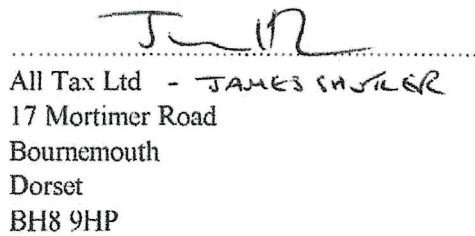 All Tax Ltd - JAMES
17 Mortimer Road
Bournemouth
Dorset
BH8 9HP